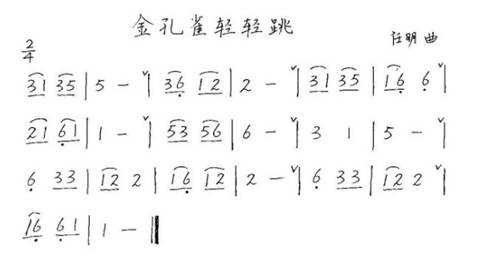 金孔雀轻轻跳
2/4
任明 曲
3135|5-ᵛ|36̣12|2-ᵛ|3135|16̣6̣ᵛ|
216̣1|1-ᵛ|5356|6-ᵛ|31|5-ᵛ|
6̣33|122|16̣12|2-ᵛ|6̣33|122ᵛ|
16̣6̣1|1-‖